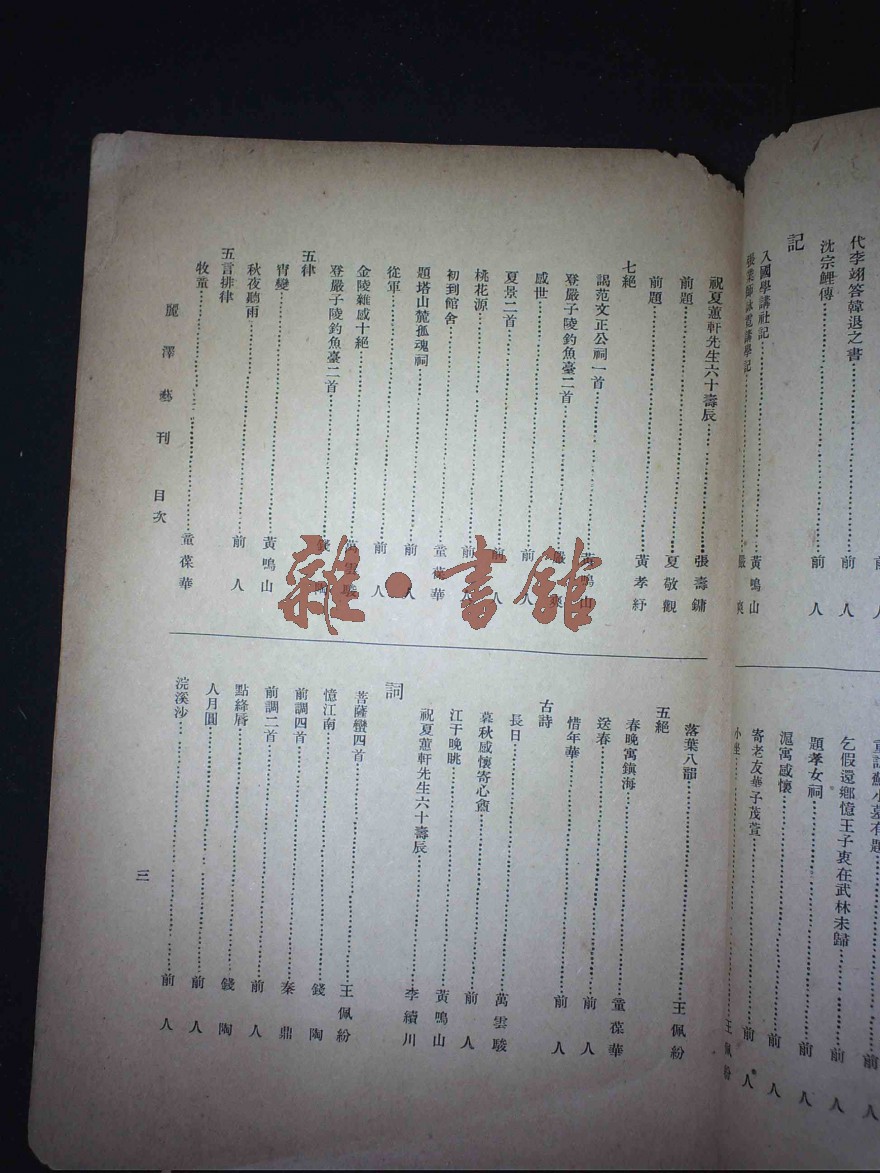 代李翊答韓退之書 前人
沈宗鯉傳 前人
記
入國學講社記 黃鳴山
乞假還鄉憶王子衷在武林未歸 前人
題孝女祠 前人
滬寓感懷 前人
寄老友華子茂萱 前人
小坐 王佩紛
祝夏蕙軒先生六十壽辰 張壽鏞
前題 夏敬觀
前題 黃孝紓
七絕
謁范文正公祠一首 黃鳴山
登嚴子陵釣魚臺二首
感世 前人
夏景二首 前人
桃花源 前人
初到館舍 童葆華
題塔山麓孤魂祠 前人
從軍 前人
金陵雜感十絕 萬雲駿
登嚴子陵釣魚臺二首 錢陶
五律
胄變 黃鳴山
秋夜聽雨 前人
五言排律
牧童 童葆華
落葉八韻 王佩紛
五絕
春晚寓鎮海 童葆華
送春 前人
惜年華 前人
古詩
長日 萬雲駿
暮秋感懷寄心盦 前人
江干晚眺 黃鳴山
祝夏蕙軒先生六十壽辰 李續川
詞
菩薩蠻四首 王佩紛
憶江南 錢陶
前調四首 秦鼎
前調二首 前人
點絳唇 錢陶
人月圓 前人
浣溪沙 前人
麗澤藝刊 目次
三
雜·書館